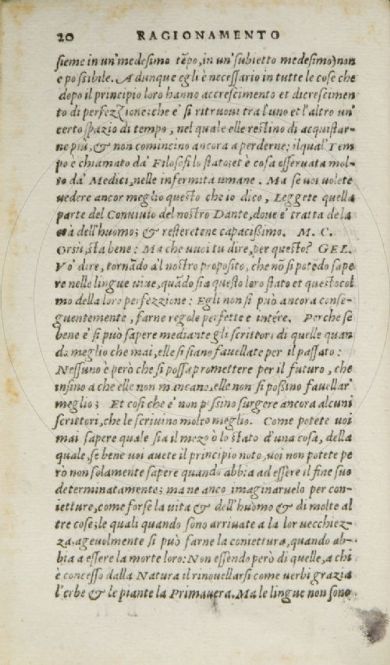 20 RAGIONAMENTO
sieme in un' medesimo tēpo, in un' subietto medesimo) non
e possibile. A dunque egli è necessario in tutte le cose che
dopo il principio loro hanno accrescimento et dicrescimen
to di perfezzione: che e' si ritruovi tra l'uno et l'altro un'
certo spazio di tempo, nel quale elle restino di acquistar-
ne piu, & non comincino ancora a perderne; il qual Tem
po è chiamato da' Filosofi lo stato: et è cosa osservata mol-
to da' Medici, nelle infermita umane. Ma se voi volete
vedere ancor meglio questo che io dico, Leggete quella
parte del Convivio del nostro Dante, dove e' tratta dela
età dell'huomo; & resteretene capacissimo. M. C.
Orsù, sta bene: Ma che vuoi tu dire, per questo? GEL.
Vo' dire, tornādo al nostro proposito, che nō si potēdo sape
re nelle lingue vive, quādo sia questo loro stato et questo col
mo della loro perfezzione: Egli non si può ancora conse-
guentemente, farne regole perfette e intere. Perche se
bene e' si può sapere mediante gli scrittori di quelle quan
do meglio che mai, elle si siano favellate per il passato:
Nessuno è però che si possa promettere per il futuro, che
insino a che elle non mancano, elle non si possino favellar'
meglio; Et cosi che e' non possino surgere ancora alcuni
scrittori, che le scrivino molto meglio. Come potete voi
mai sapere quale sia il mezo ò lo stato d'una cosa, della
quale, se bene voi avete il principio noto, voi non potete pe
rò non solamente sapere quando abbia ad essere il fine suo
determinatamente; ma ne anco imaginarvelo per con-
ietture, come forse la vita & dell'huomo & di molte al
tre cose; le quali quando sono arrivate a la lor vecchiez-
za, agevolmente si può farne la coniettura, quando ab-
bia a essere la morte loro: Non essendo però di quelle, a chi
è concesso dalla Natura il rinovellarsi come verbi grazia
l'erbe & le piante la Primavera. Ma le lingue non sono